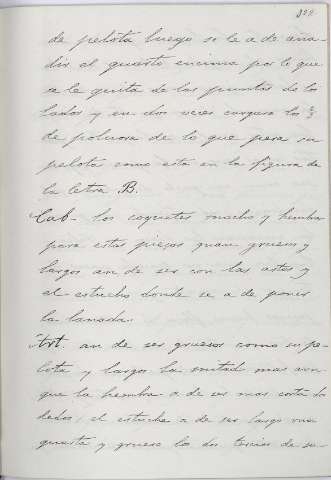 de pelota luego se le a de aña-
dir el quarto encima por lo que
se le quita de las puntas de los
lados y en dos veces cargara los 2/3
de polvora de lo que pesa su
pelota como esta en la figura de
la letra B.
Cab- los coquetes macho y hembra
para estas piezas quan gruesos y
largos an de ser con las astas y
el estuche donde se a de poner
la lanada.
Art. an de ser gruesos como su pe-
lota y largos la mitad mas aun-
que la hembra a de ser mas corta do
dedos; el estuche a de ser largo una
quarta y grueso los dos tercios de su-